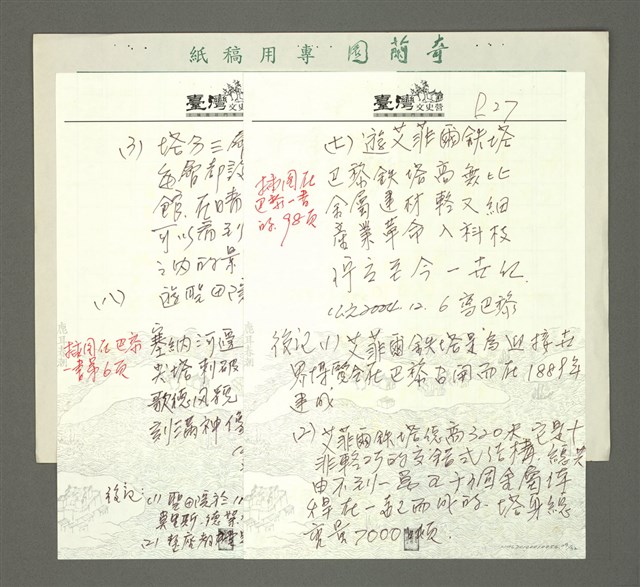 奇蘭園專用稿紙
臺灣文史營
P.27
(七) 遊艾菲爾鉄塔
巴黎鉄塔高無比
金屬建材輕又細
產業革命入科技
佇立至今一世紀
公元2004.12.6寫巴黎
插圖在
巴黎一書
的98頁
後記(1) 艾菲爾鉄塔是為迎接世
界博覽会在巴黎召開而在1889年
建成
(2) 艾菲爾鉄塔總高320米,它是十
非輕巧的交錯式结構,總共
由不到一萬五千個金屬件
焊在一起而成的.塔身總
重量7000噸.
臺灣文史營
(3) 塔分三
館.在晴
可以看到
之内的景
(八) 遊聖母院
塞納河邊
尖塔刺破
歌德风貌
刻滿神像
插圖在巴黎
一書第6頁
後記:
(1) 聖母院於
(2) 整座教